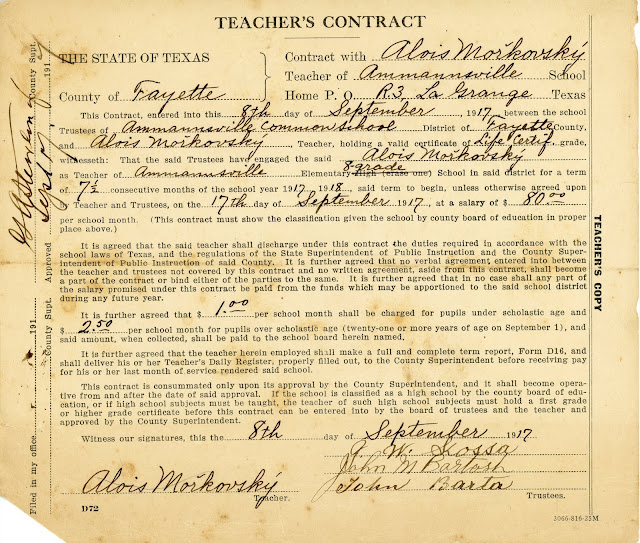 TEACHER'S CONTRACT
THE STATE OF TEXAS
County of Fayette
Contract with Alois Mořkovský
Teacher of Ammannsville School
Home P. O. R3, La Grange Texas
This Contract, entered into this 8th day of September, 1917, between the school
Trustees of Ammannsville Common School District of Fayette County,
and Alois Mořkovský Teacher, holding a valid certificate of Life Certif. grade,
witnesseth: That the said Trustees have engaged the said Alois Mořkovský
as Teacher of Ammannsville Elementary-High (erase one) 8 grade School in said district for a term
of 7½ consecutive months of the school year 1917 1918, said term to begin, unless otherwise agreed upon
by Teacher and Trustees, on the 17th day of September 1917, at a salary of $ 80.00
per school month. (This contract must show the classification given the school by county board of education in proper
place above.)
It is agreed that the said teacher shall discharge under this contract the duties required in accordance with the
school laws of Texas, and the regulations of the State Superintendent of Public Instruction and the County Super-
intendent of Public Instruction of said County. It is further agreed that no verbal agreement entered into between
the teacher and trustees not covered by this contract and no written agreement, aside from this contract, shall become
a part of the contract or bind either of the parties to the same. It is further agreed that in no case shall any part of
the salary promised under this contract be paid from the funds which may be apportioned to the said school district
during any future year.
It is further agreed that $ 1.00 per school month shall be charged for pupils under scholastic age and
$ 2.50 per school month for pupils over scholastic age (twenty-one or more years of age on September 1), and
said amount, when collected, shall be paid to the school board herein named.
It is further agreed that the teacher herein employed shall make a full and complete term report, Form D16, and
shall deliver his or her Teacher's Daily Register, properly filled out, to the County Superintendent before receiving pay
for his or her last month of service rendered said school.
This contract is consummated only upon its approval by the County Superintendent, and it shall become opera-
tive from and after the date of said approval. If the school is classified as a high school by the county board of edu-
cation, or if high school subjects must be taught, the teacher of such high school subjects must hold a first grade
or higher grade certificate before this contract can be entered into by the board of trustees and the teacher and
approved by the County Superintendent.
Witness our signatures, this the 8th day of September 1917
W. Kossa
John M Bartosh
Alois Mořkovský
John Barta
Teacher.
Trustees.
D72
3066-816-25M
TEACHER'S COPY
Filed in my office, 191 County Supt.
Approved Sept 191 County Supt.